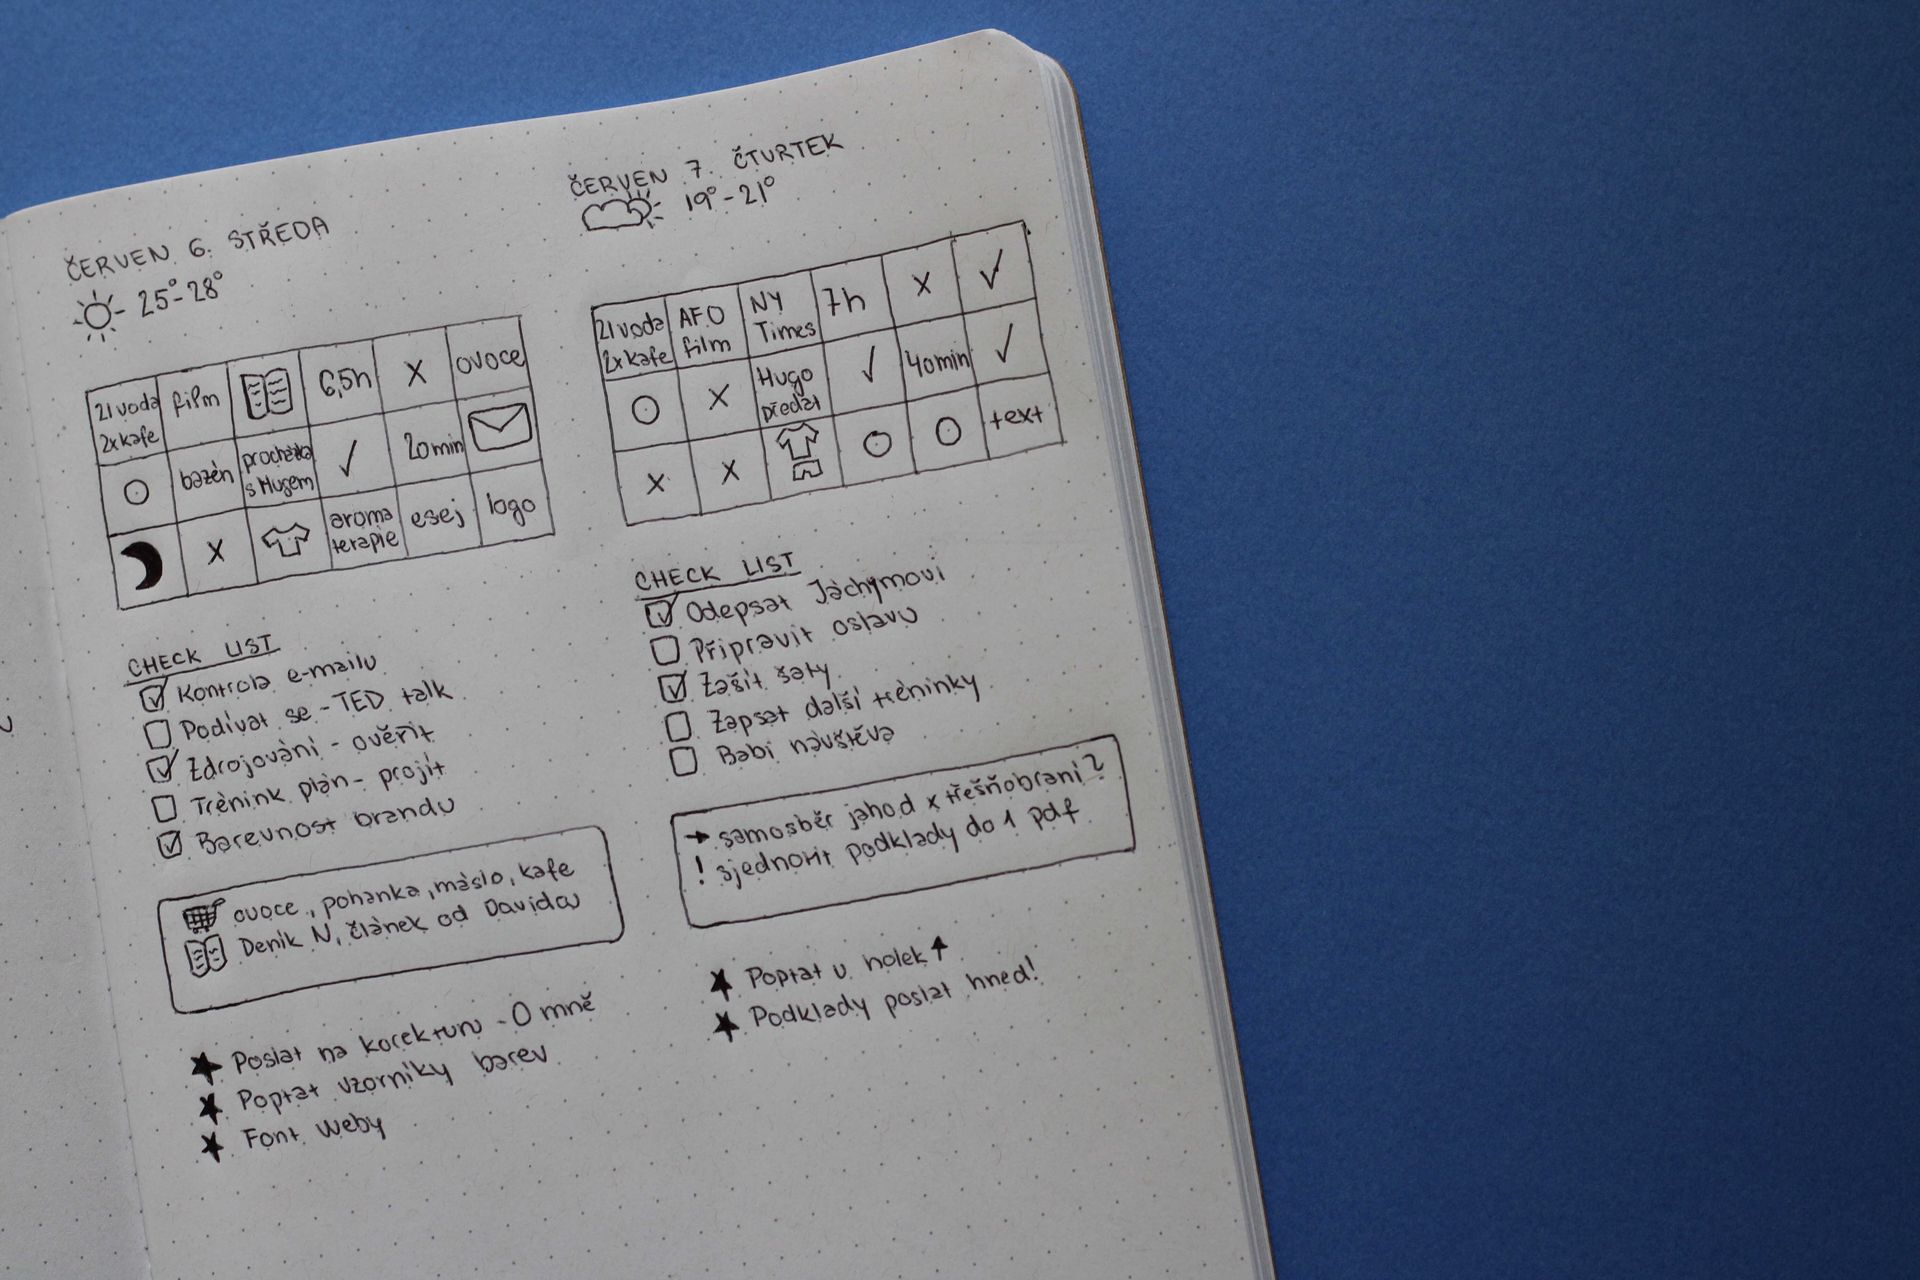 ČERVEN 6. STŘEDA
25°-28°
2l voda film 6,5h X ovoce
2x kafe
bazén procházka s Hugem ✓ 20min
X aroma terapie esej logo
CHECK LIST
☑ Kontrola e-mailu
☐ Podívat se - TED talk
☑ Zdrojování - ověřit
☐ Trénink plán - projít
☑ Barevnost brandu
ovoce, pohanka, máslo, kafe
Deník N, článek od Davida
★ Poslat na korekturu - O mně
★ Poptat vzorníky barev
★ Font weby
ČERVEN 7. ČTVRTEK
19°-21°
2l voda AFO NY 7h X ✓
2x kafe film Times
X Hugo předat ✓ 40min ✓
X X text
CHECK LIST
☑ Odepsat Jáchymovi
☐ Připravit oslavu
☑ Zašít šaty
☐ Zapsat další tréninky
☐ Babi návštěva
→ samosběr jahod x třešňobraní?
! sjednotit podklady do 1 pdf
★ Poptat u holek ↑
★ Podklady poslat hned!